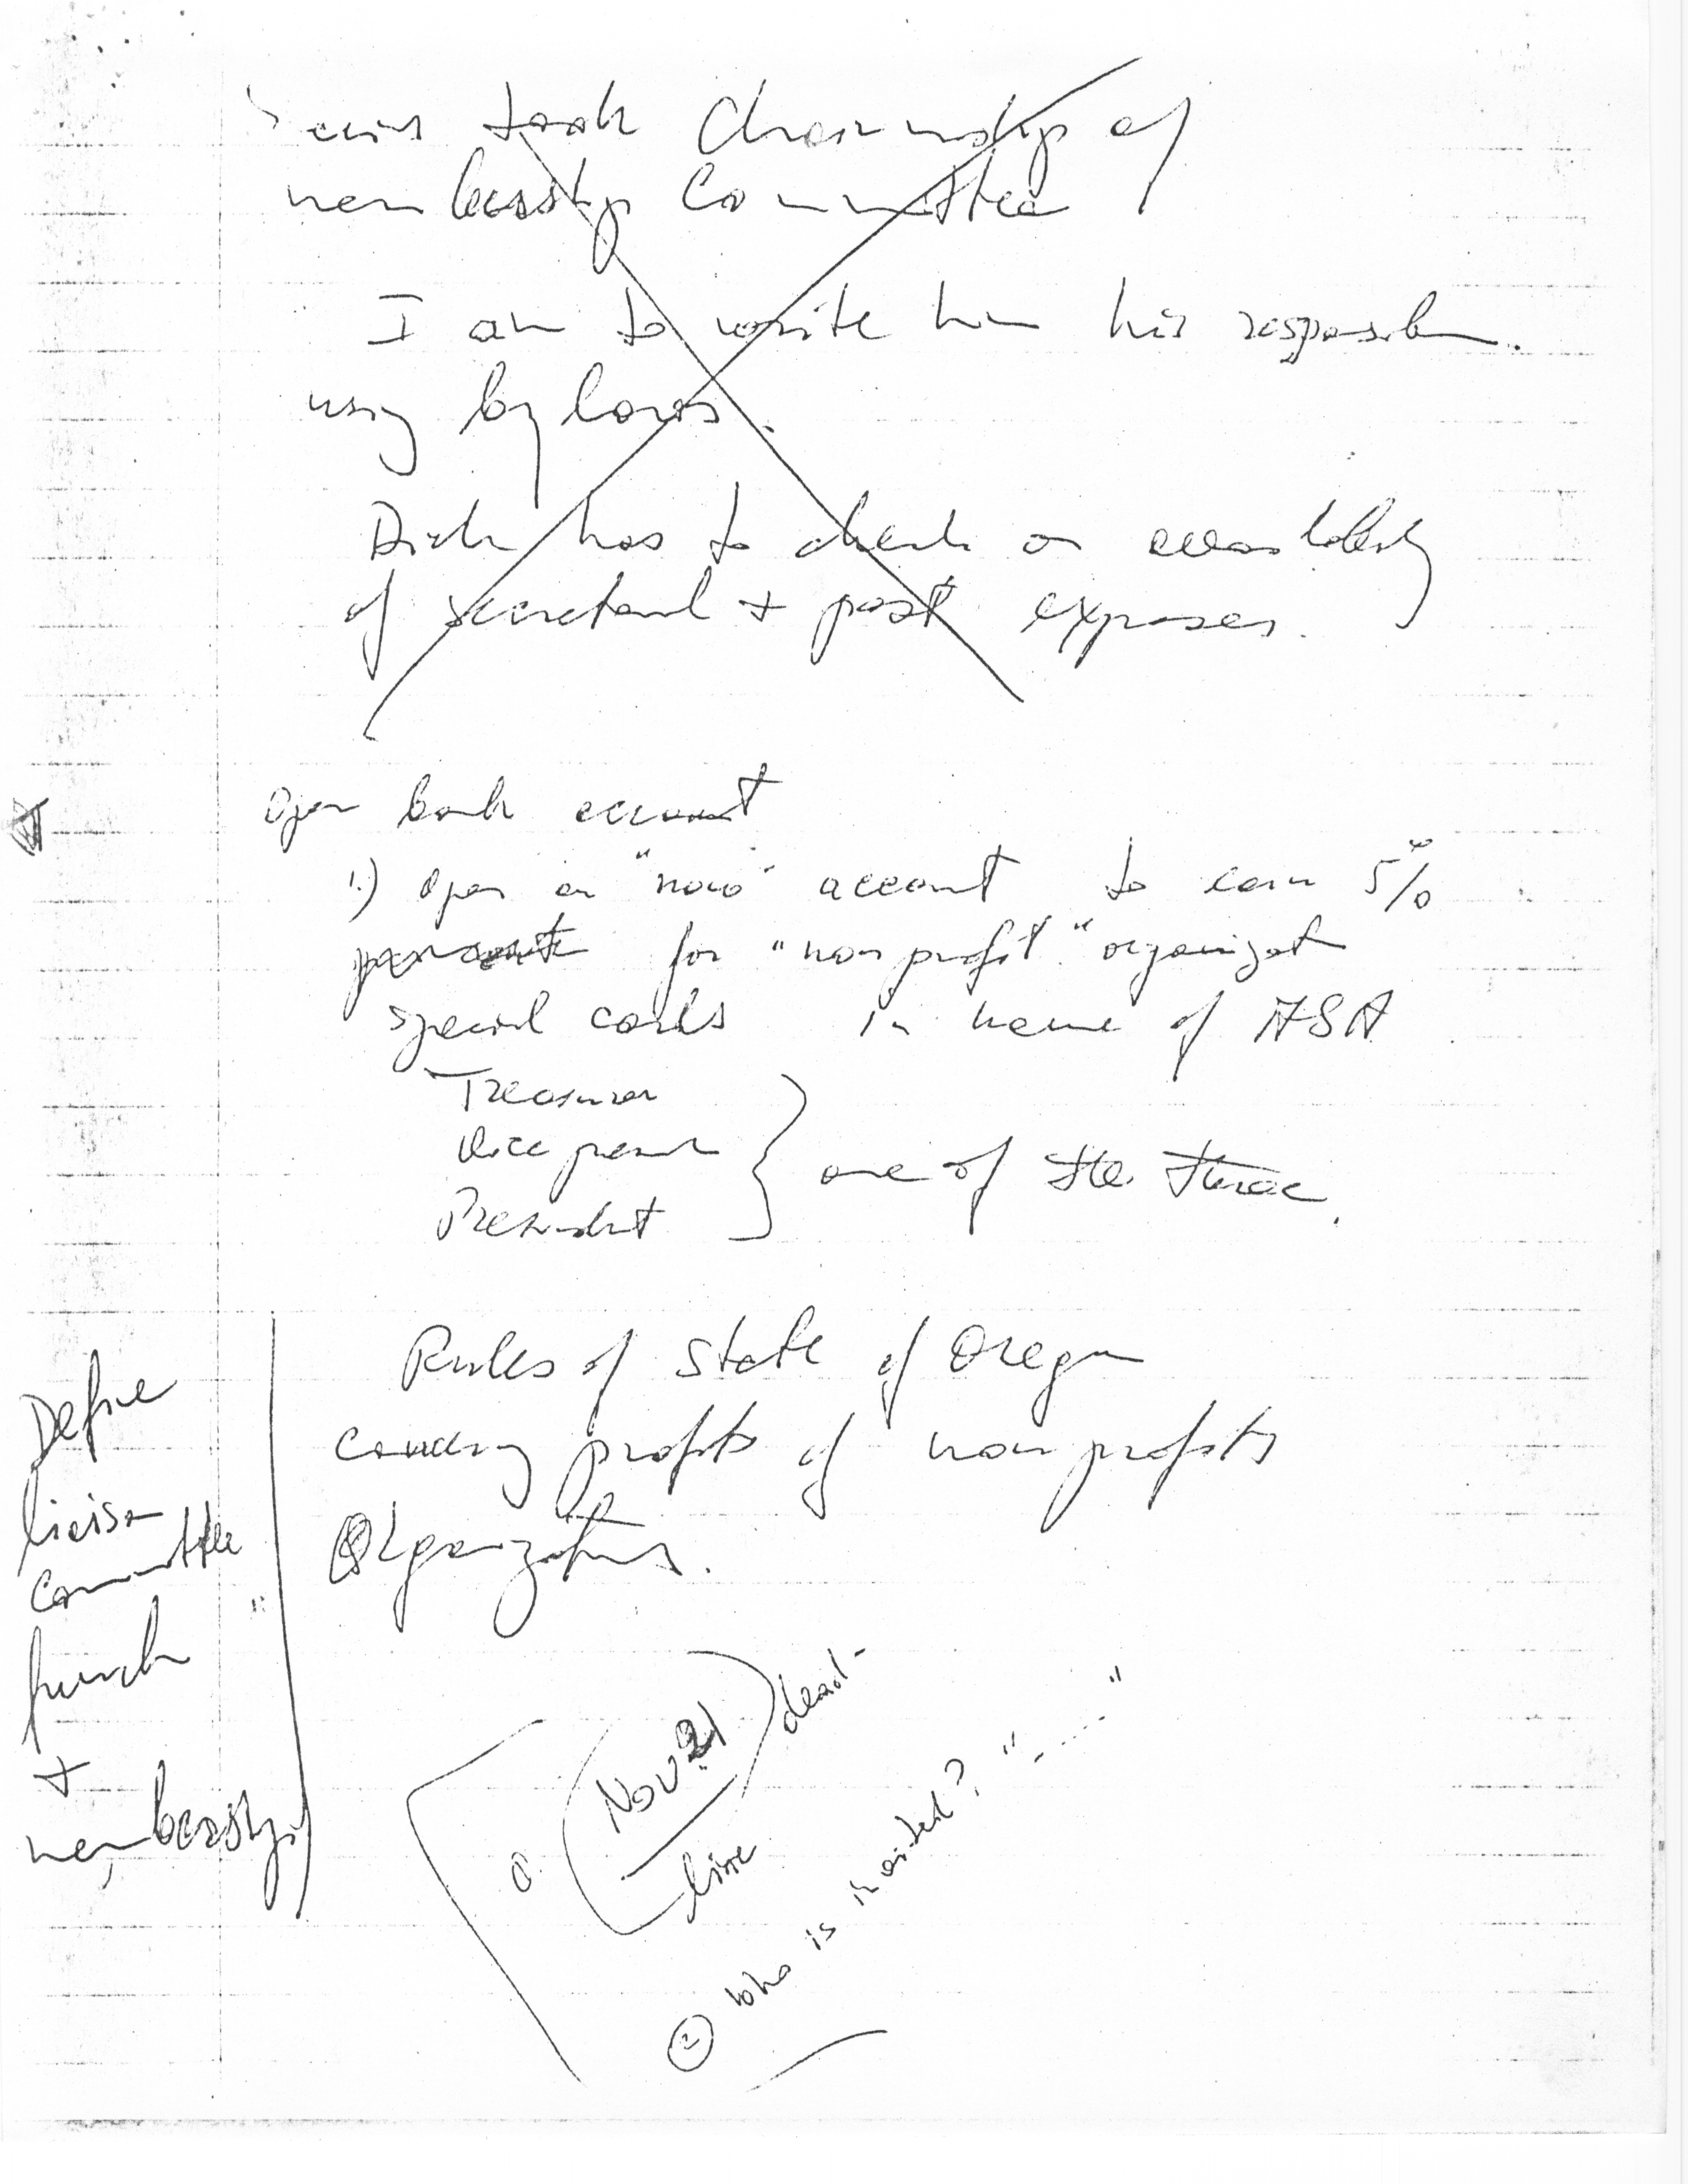 took Chairmanship of
membership Committee
I am to write him his
using by laws.
Dick has to check on
of secretarial + post expenses.
Open bank account
1.) Open a "now" account to earn 5%
for "non profit" organizat
special cards in name of ASA
Treasurer
Vice
President
one of the three.
Rules of State of Oregon
profits of non profits
Organizations.
Define
liaison
committee
+
membership
Nov 21 dead-
line
② Who is invited? "-----"